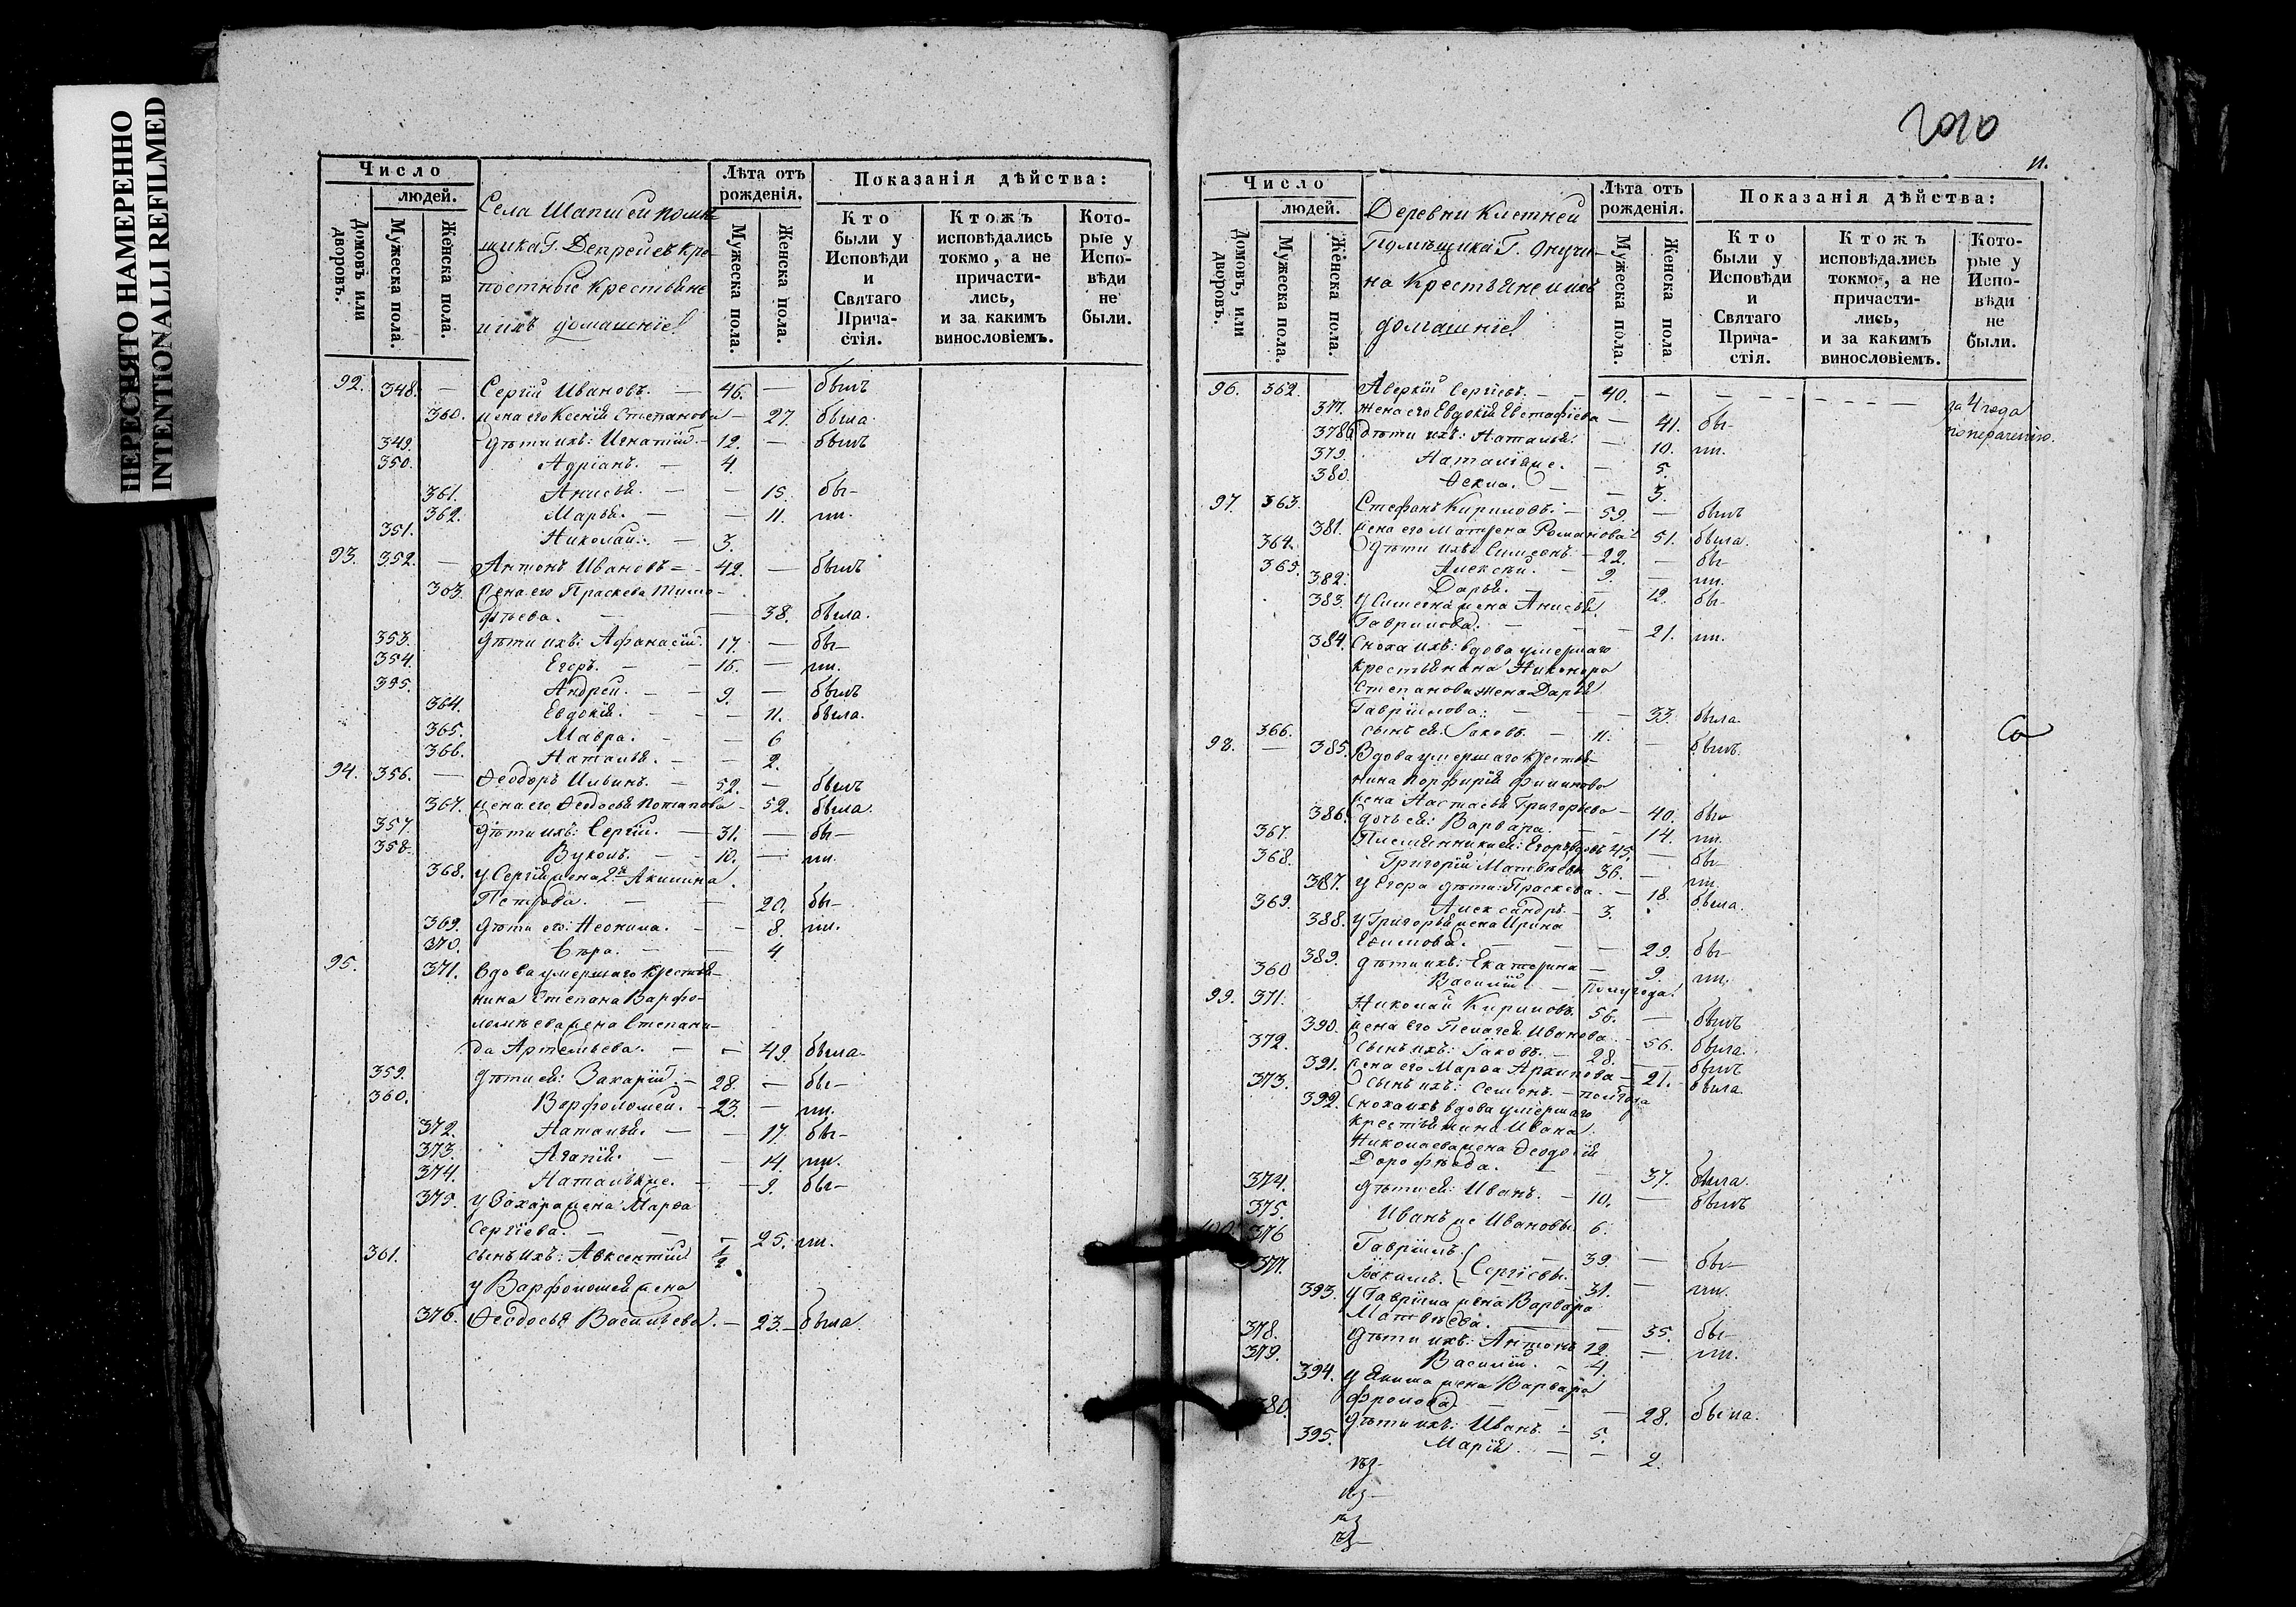 ПЕРЕСНЯТО НАМЕРЕННО
INTENTIONALLI REFILMED
Число
людей.
Домовъ или дворовъ.
Мужеска пола.
Женска пола.
Села помѣ-
щика Г. кре-
постные крестьяне
и ихъ домашніе
Лѣта отъ рожденія.
Мужеска пола.
Женска пола.
Показанія дѣйства:
Кто были у Исповѣди и Святаго Прича-стія.
Ктожъ исповѣдались токмо, а не причасти-лись, и за какимъ винословіемъ.
Кото-рые у Испо-вѣди не были.
92. 348. — Сергій Ивановъ. — 46. — былъ
360. жена его Ксенія Степанова — 27. была
349. дѣти ихъ: Игнатій. — 12. — былъ
350. Адріанъ. — 4.
361. Анисья. — — 15. бы-
362. Марья. — — 11. ли.
351. Николай. — 3.
93. 352. — Антонъ Ивановъ — 42. — былъ
363. жена его Праскева Тимо-
фѣева. — — 38. была.
353. дѣти ихъ: Афанасій. 17. — бы-
354. Егоръ. — 15. — ли.
355. Андрей. — 9. — былъ
364. Евдокія. — — 11. была.
365. Мавра. — — 6
366. Наталья. — — 2.
94. 356. — Ѳеодоръ Ильинъ. — 52. — былъ
367. жена его Ѳеодосья Потапова — 52. была.
357. дѣти ихъ: Сергій. — 31. — бы-
358. Вуколъ. — 10. — ли.
368. у Сергія жена 2я Акилина
Петрова. — — 20. бы-
369. дѣти его: Неонила. — — 8. ли.
370. Вѣра. — — 4
95. 371. вдова умершаго крестья-
нина Степана Варфо-
ломѣева жена Степани-
да Артемьева. — — 49. была
359. дѣти ея: Захарій. — 28. — бы-
360. Варфоломей. — 23. — ли.
372. Наталья. — — 17. бы-
373. Агапія. — — 14. ли.
374. Наталья же. — — 9. бы-
375. у Захара жена Марѳа
Сергіева. — — 25. ли.
361. сынъ ихъ: Авксентій 1/2
у Варфоломея жена
376. Ѳеодосья Васильева. — 23. — была
2010
11.
Число
людей.
Домовъ, или дворовъ.
Мужеска пола.
Женска пола.
Деревни Клетней
Помѣщика Г. Онучи-
на Крестьяне и ихъ
домашніе
Лѣта отъ рожденія.
Мужеска пола.
Женска пола
Показанія дѣйства:
Кто были у Исповѣди и Святаго Прича-стія.
Ктожъ исповѣдались токмо, а не причасти-лись, и за какимъ винословіемъ.
Кото-рые у Испо-вѣди не были.
96. 362. Аверкій Сергіевъ. — 40. — — за 4 года
по нерачению.
377. жена его Евдокія Евстафіева — 41. бы-
378. дѣти ихъ: Наталья. — 10. ли.
379. Наталія же. — 5.
380. Ѳекла. — — 3.
97. 363. Стефанъ Кириловъ. — 59. — былъ
381. жена его Матрена Романова 51. была.
364. дѣти ихъ: Симеонъ. — 22. — бы-
365. Алексѣй. — 9. — ли.
382. Дарья. — — 12. бы-
383. у Симеона жена Анисья
Гаврилова. — — 21. ли.
384. Сноха ихъ: вдова умершаго
крестьянина Никонора
Степанова жена Дарья
Гаврилова. — — 33. была.
366. сынъ ея: Іаковъ. — 11. — былъ.
98. — 385. Вдова умершаго крестья-
нина Порфирія Филипова
жена Настасья Григорьева — 40. бы-
386. дочь ея: Варвара. — — 14. ли.
367. Племянники ея: Егоръ вдовъ 45. — бы-
368. Григорій Матвѣевы 36. — ли.
387. у Егора дѣти: Праскева. — 18. была.
369. Александръ. — 3.
388. у Григорья жена Ирина
Екимова. — — 29. бы-
389. дѣти ихъ: Екатерина — 9. ли.
360 Василій. — полугода.
99. 371. Николай Кириловъ. 56. — былъ
390. жена его Пелагея Иванова — 56. была.
372. Сынъ ихъ: Іаковъ. — 28. — былъ
391. жена его Марѳа Архипова — 21. была
373. Сынъ ихъ: Семенъ. — полгода
392. Сноха ихъ вдова умершаго
крестьянина Ивана
Николаева жена Ѳеодосія
Дорофѣева. — — 37. была.
374. дѣти ея: Иванъ. — 10. — былъ
375. Иванъ же Ивановы 6.
100. 376 Гавріилъ. 39. — бы-
377. Іоакимъ. Сергіевы. 31. — ли.
393. у Гавріила жена Варвара
Матвѣева. — — 35. бы-
378. дѣти ихъ: Антонъ 12. — ли.
379. Василій. — 4.
394. у Якима жена Варвара
Фролова — — 28. была.
380. дѣти ихъ: Иванъ. — 5.
395. Марія. — — 2.